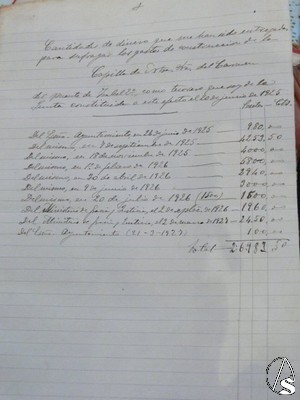 Cantidades de dinero que me han sido entregadas
para sufragar los gastos de restauracion de la
Capilla de Ntra. Sra. del Carmen
del puente de Isabel II, como tesorero que soy de la
Junta constituida a este efecto el de junio de 1925
Pesetas Cts.
Del Exmo. Ayuntamiento en 26 junio de 1925 982,00
Del mismo, en 2 de septiembre de 1925 4253,50
Del mismo, en 18 de noviembre de 1925 4000,00
Del mismo, en de marzo de 1926 5800,00
Del mismo, en 30 de abril de 1926 2940,00
Del mismo, en 9 de junio de 1926 3000,00
Del mismo, en 20 de julio de 1926 1500,00
Del Ministerio de Gracia y Justicia, el 2 de agosto de 1926 1960,00
Del Ministerio Gracia y Justicia, el 12 de marzo de 1927 2450,00
Del Exmo. Ayuntamiento (31-3-1927) 100,00
Total 26982,50